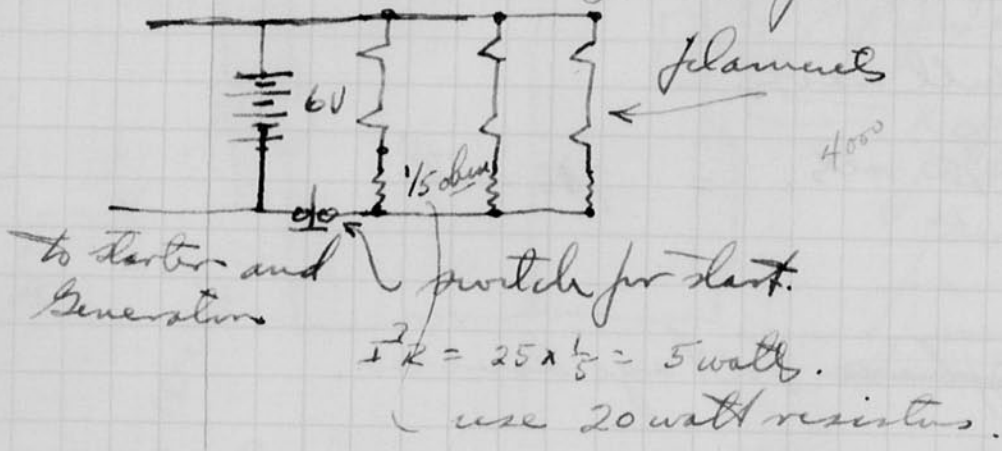 6V
filaments
4000
1/5 ohm
to starter and
Generator
switch for start.
I²R = 25 x 1/5 = 5 watts.
use 20 watt resistors.